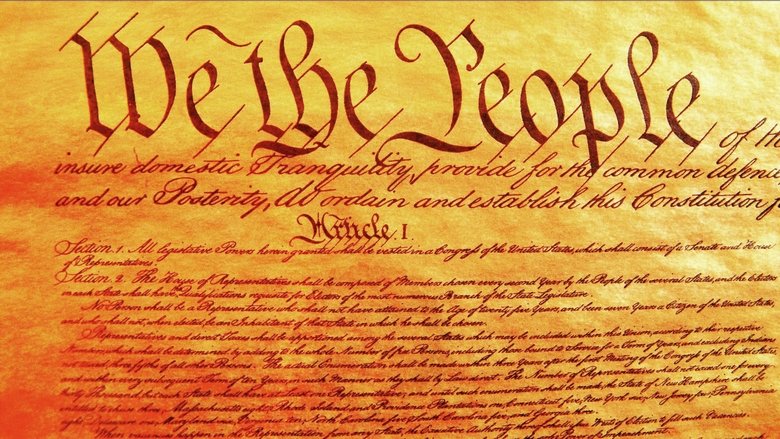 We the People of th
insure domestic Tranquility, provide for the common defence
and our Posterity, do ordain and establish this Constitution f
Article I
Section 1. All legislative Powers herein granted shall be vested in a Congress of the United States, which shall consist of a Senate and House
of Representatives.
Section 2. The House of Representatives shall be composed of Members chosen every second Year by the People of the several States, and the Electors
in each State shall have the Qualifications requisite for Electors of the most numerous Branch of the State Legislature.
No Person shall be a Representative who shall not have attained to the Age of twenty five Years, and been seven Years a Citizen of the United States,
and who shall not, when elected, be an Inhabitant of that State in which he shall be chosen.
Representatives and direct Taxes shall be apportioned among the several States which may be included within this Union, according to their respective
Numbers, which shall be determined by adding to the whole Number of free Persons, including those bound to Service for a Term of Years, and excluding Indians
three fifths of all other Persons. The actual Enumeration shall be made within three Years after the first Meeting of the Congress of the United States
and within every subsequent Term of ten Years, in such Manner as they shall by Law direct. The Number of Representatives shall not exceed one for every
thirty Thousand, but each State shall have at Least one Representative; and until such enumeration shall be made, the State of New Hampshire shall be
entitled to chuse three, Massachusetts eight, Rhode Island and Providence Plantations one, Connecticut five, New York six, New Jersey four, Pennsylvania
eight, Delaware one, Maryland six, Virginia ten, North Carolina five, South Carolina five, and Georgia three.
When vacancies happen in the Representation from any State, the Executive Authority thereof shall issue Writs of Election to fill such Vacancies.